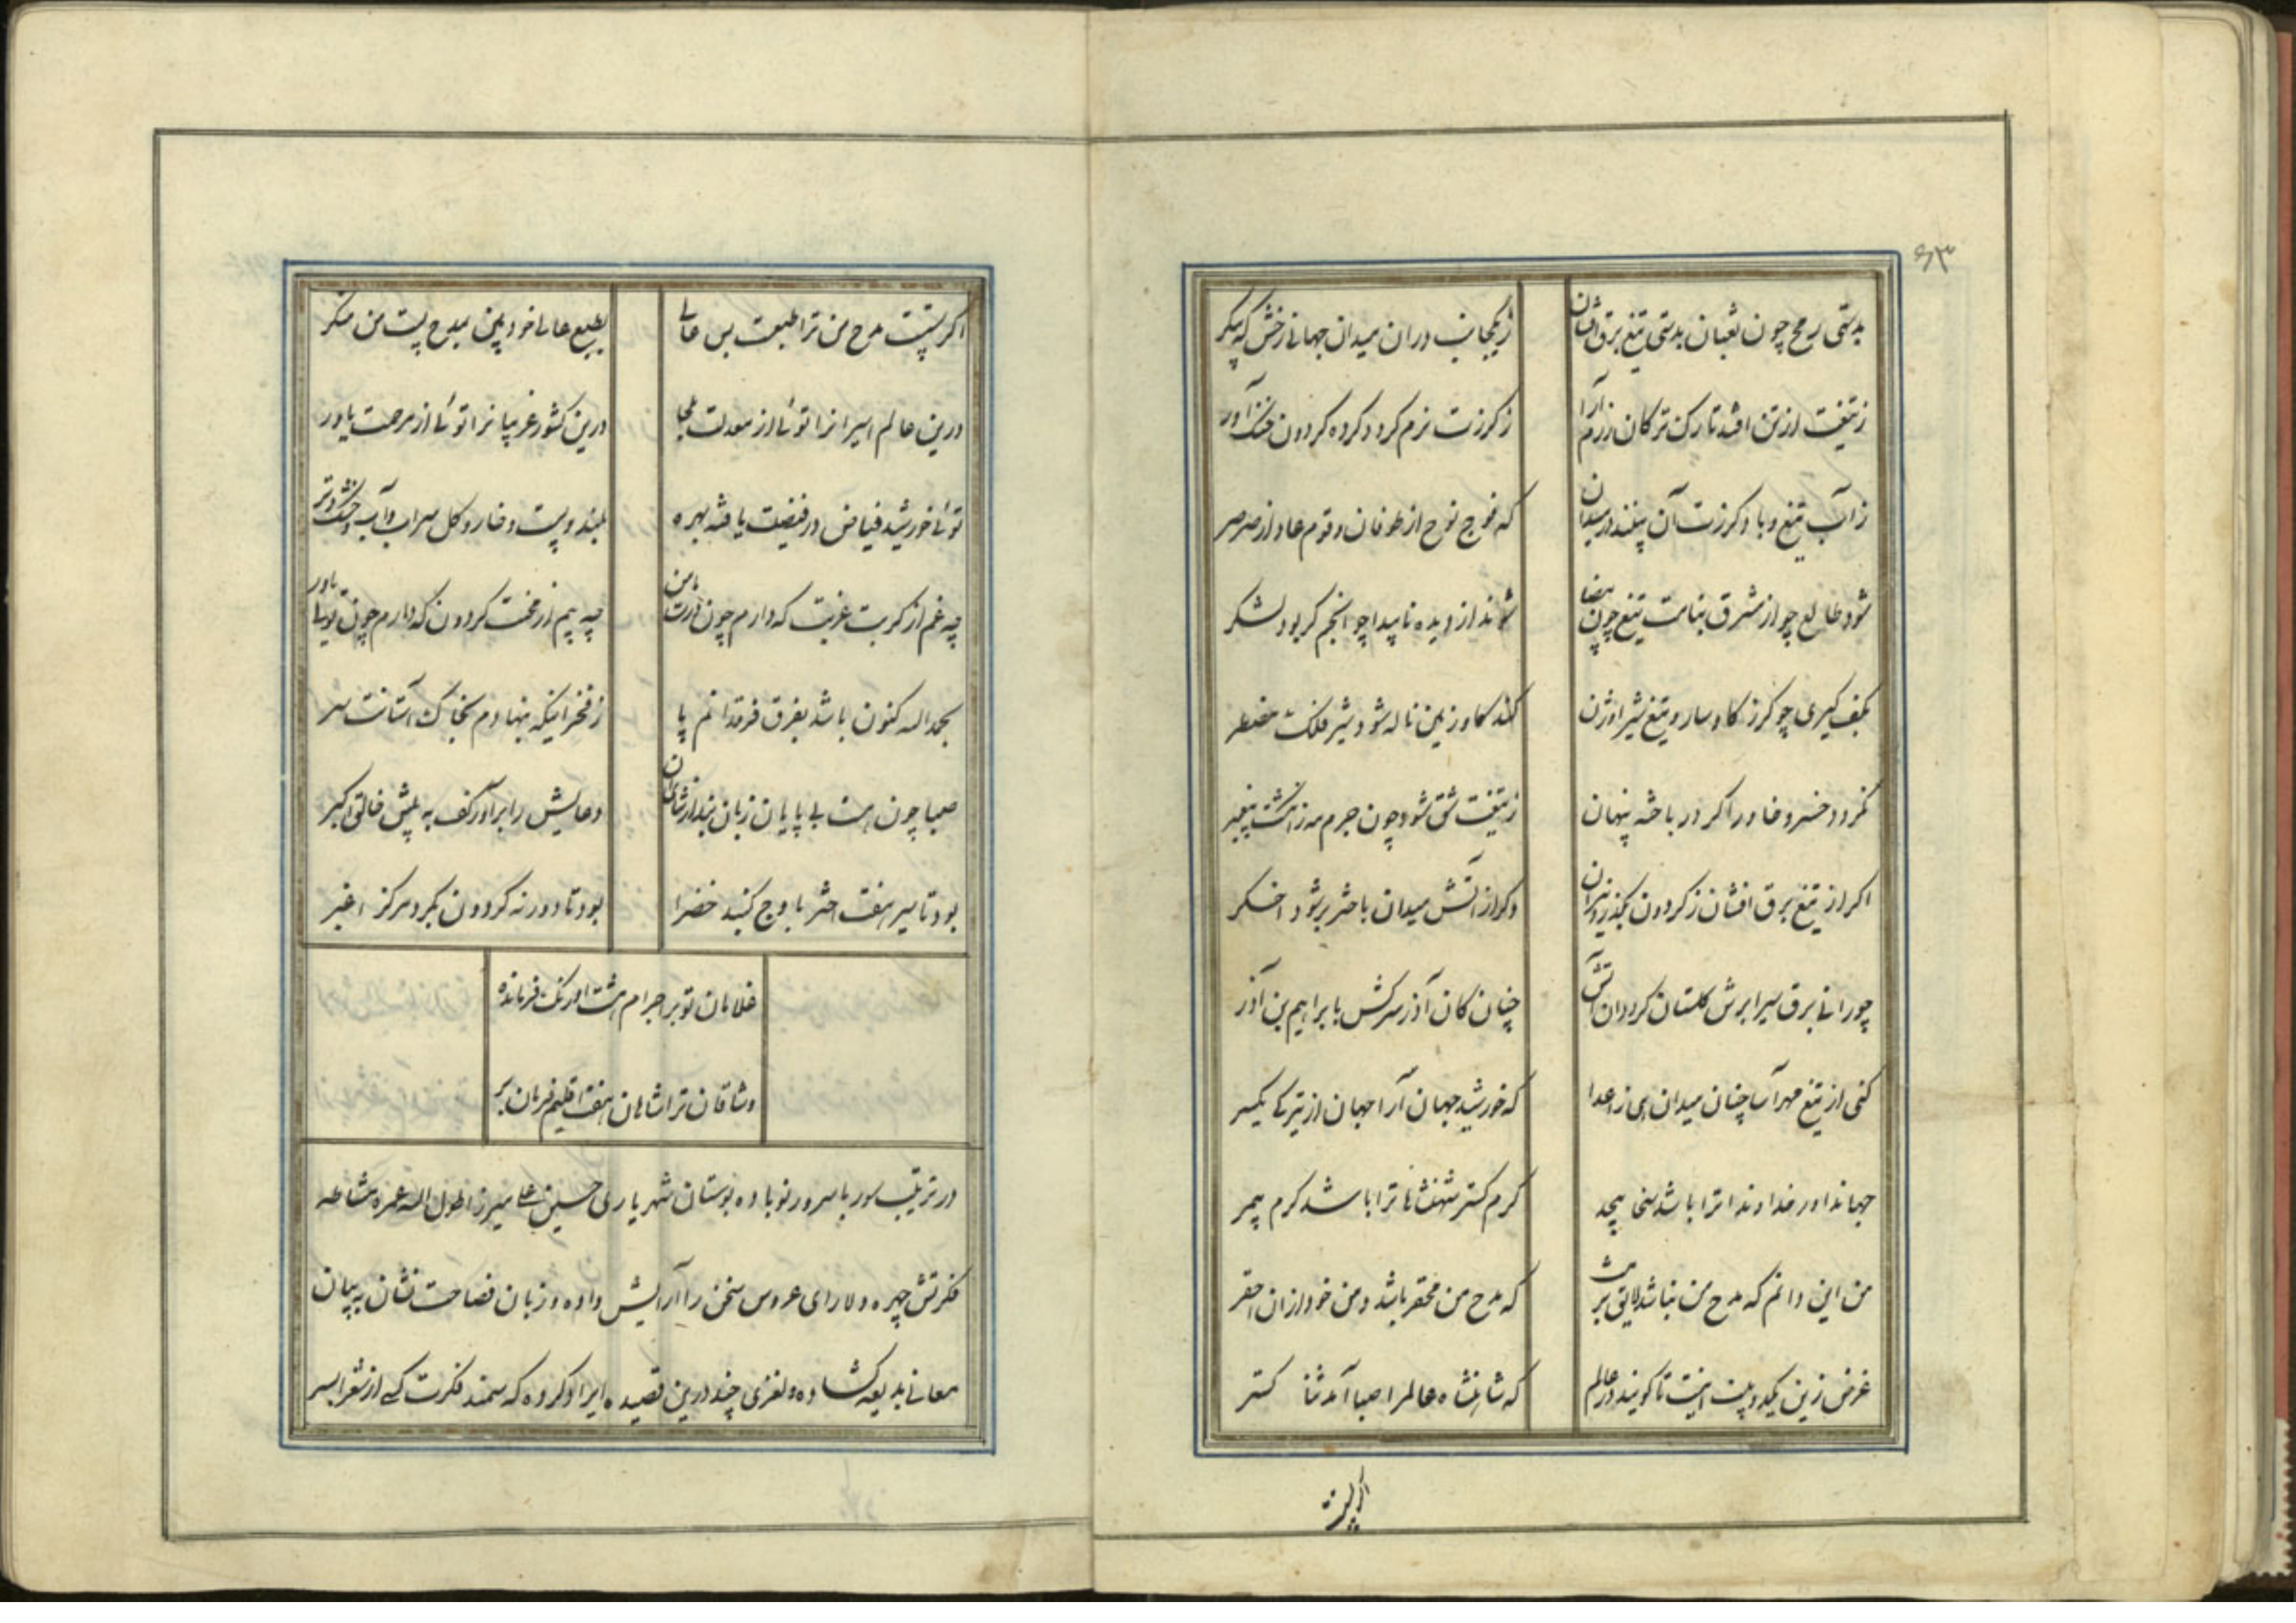 ۶۳
بدستی رمح چون ثعبان بدستی تیغ برق افشان
زیکجانب دران میدان جهانی رخش که پیکر
ز تیغت از تن افتد تارک ترکان رزم آرا
ز گرزت نرم گردد گرده گردون جنگ آور
ز آب تیغ و باد گرزت آن بینند در میدان
که فوج نوح از طوفان و قوم عاد از صرصر
شود طالع چو از مشرق بنامت تیغ چون بیضا
شوند از دیده ناپیدا چو انجم گر بود لشکر
بکف گیری چو گرز گاوسار و تیغ شیر اوژن
کند گاو زمین ناله شود شیر فلک مضطر
گر در خسرو خاور اگر در باختر پنهان
ز تیغت شق شود چون جرم مه ز انگشت پیغمبر
اگر از تیغ برق افشان ز گردون بگذرد نیران
وگر از آتش میدان باختر بر شود اخگر
چو رانی برق سیر ابرش گلستان گردد آن آتش
چنان کان آذر سرکش بابراهیم بن آذر
کنی از تیغ مهرآسا چنان میدان تهی ز اعدا
که خورشید جهان آرا جهان از تیرگی یکسر
جهانداور خداوندا ترا باشد سخی بیحد
کرم گستر شهنشاها ترا باشد کرم بیمر
من این دانم که مدح من نباشد لایق بزمت
که مدح من محقر باشد و من خود ازان احقر
غرض زین یکدو بیت اینست تا گویند در عالم
که شاهنشاه عالم را صبا آمد ثنا گستر
اگر پست
اگر پستست مدح من ترا طبعت بس عالی
بطبع عالی خود بین بمدح پست من منگر
درین عالم اسیرانرا توئی از معدلت ملجا
درین کشور غریبانرا توئی از مرحمت یاور
توئی خورشید فیاض و ز فیضت یافته بهره
بلند و پست و خار و گل سراب و آب و خشک و تر
چه غم از کربت غربت که دارم چون درت مامن
چه بیم از محنت گردون که دارم چون توئی یاور
بحمد الله کنون باشد بفرق فرقدانم پا
ز فخر اینکه بنهادم بخاک آستانت سر
صبا چون هست بی پایان زبان بند از ثنای آن
دعایش را برآور کف به پیش خالق اکبر
بود تا سیر هفت اختر باوج گنبد خضرا
بود تا دور نه گردون بگرد مرکز اغبر
غلامان تو بر اجرام هشت اورنگ فرمانده
وشاقان ترا شاهان هفت اقلیم فرمان بر
در تزئیب سور باسرور نوباوه بوستان شهریاری حسین علی میرزا طول الله عمره مشاطه
فکرتش چهره دلارای عروس سخن را آرایش داده و زبان فصاحت نشان به بیان
معانی بدیعه گشاده و لغزی چند درین قصیده ایراد کرده که سمند فکرت کسی از شعرا بسر